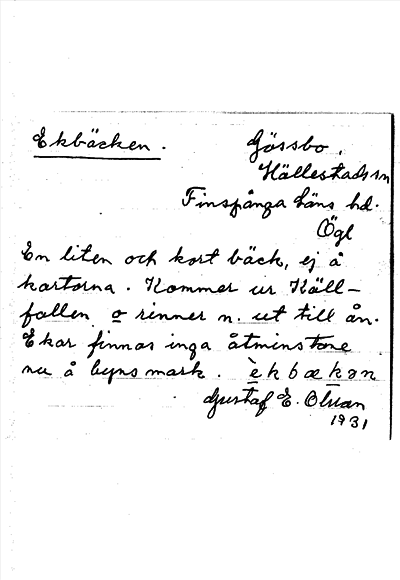 Ekbäcken.
Gössbo,
Hällestads sn
Finspånga läns hd.
Ögl
En liten och kort bäck, ej å
kartorna. Kommer ur Käll-
fallen o rinner n. ut till ån.
Ekar finnas inga åtminstone
nu å byns mark. èkbækən
Gustaf E. Olsson
1931